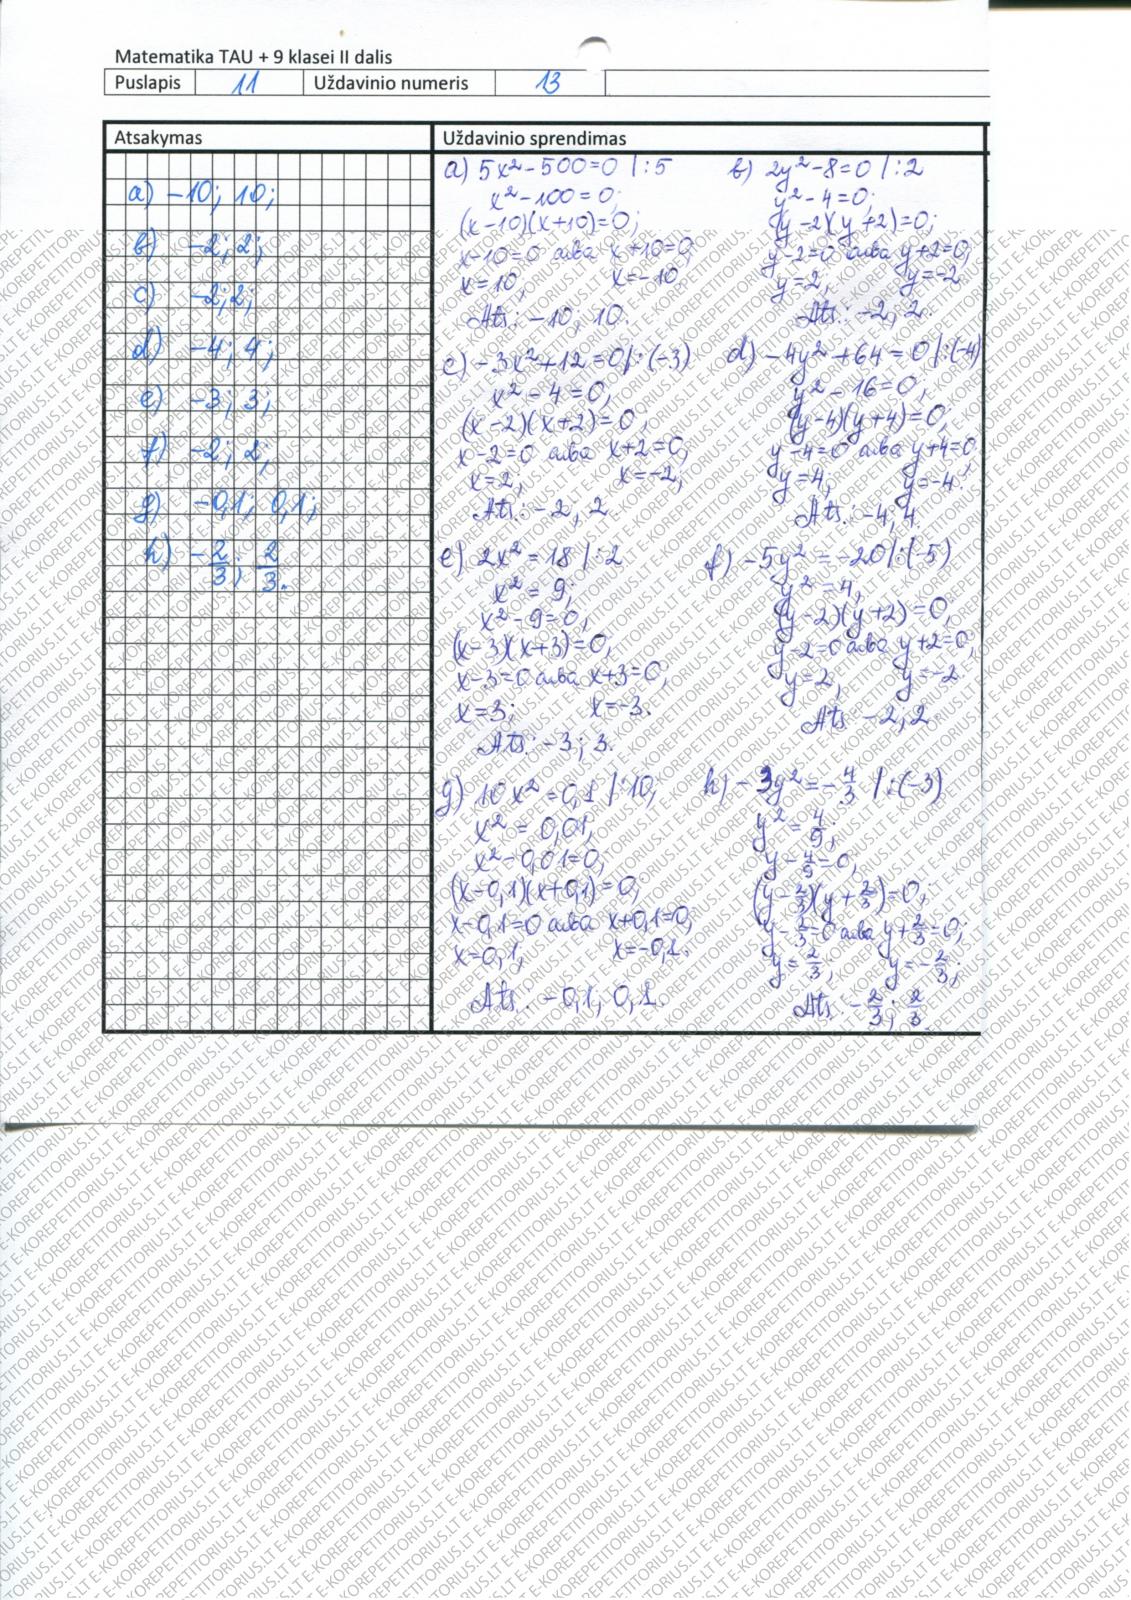 Matematika TAU + 9 klasei II dalis
Puslapis 11 Uždavinio numeris 13
Atsakymas
a) -10; 10;
b) -2; 2;
c) -2; 2;
d) -4; 4;
e) -3; 3;
f) -2; 2;
g) -0,1; 0,1;
h) -2/3; 2/3.
Uždavinio sprendimas
a) 5x²-500=0 |:5
x²-100=0;
(x-10)(x+10)=0;
x-10=0 arba x+10=0,
x=10, x=-10
Ats.: -10; 10.
b) 2y²-8=0 |:2
y²-4=0;
(y-2)(y+2)=0;
y-2=0 arba y+2=0,
y=2, y=-2
Ats.: -2, 2.
c) -3x²+12=0|:(-3)
x²-4=0,
(x-2)(x+2)=0,
x-2=0 arba x+2=0,
x=2, x=-2,
Ats.: -2, 2
d) -4y²+64=0|:(-4)
y²-16=0,
(y-4)(y+4)=0;
y-4=0 arba y+4=0
y=4; y=-4.
Ats.: -4, 4
e) 2x²=18 |:2
x²=9;
x²-9=0,
(x-3)(x+3)=0,
x-3=0 arba x+3=0,
x=3; x=-3.
Ats.: -3; 3.
f) -5y²=-20|:(-5)
y²=4,
(y-2)(y+2)=0,
y-2=0 arba y+2=0;
y=2, y=-2
Ats. -2, 2
g) 10x²=0,1 |:10,
x²=0,01,
x²-0,01=0,
(x-0,1)(x+0,1)=0,
x-0,1=0 arba x+0,1=0,
x=0,1, x=-0,1.
Ats. -0,1, 0,1.
h) -3y²=-4/3 |:(-3)
y²=4/9;
y-4/9=0,
(y-2/3)(y+2/3)=0,
y-2/3=0 arba y+2/3=0;
y=2/3, y=-2/3;
Ats. -2/3; 2/3.
E-KOREPETITORIUS.LT